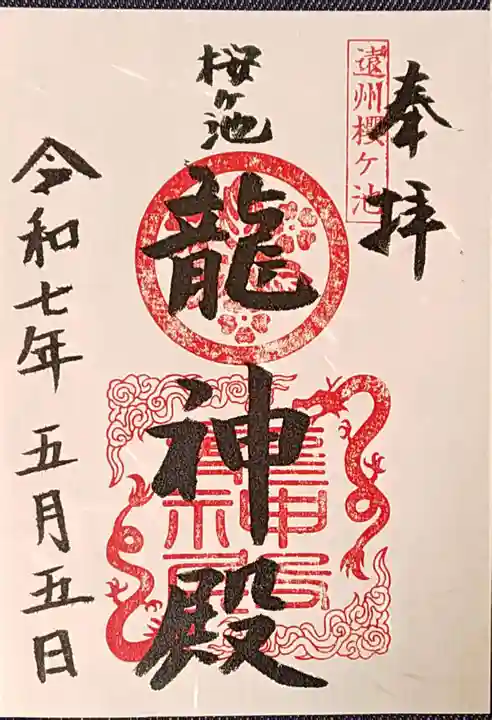 奉拝
遠州櫻ヶ池
桜ヶ池
龍神殿
令和七年五月五日